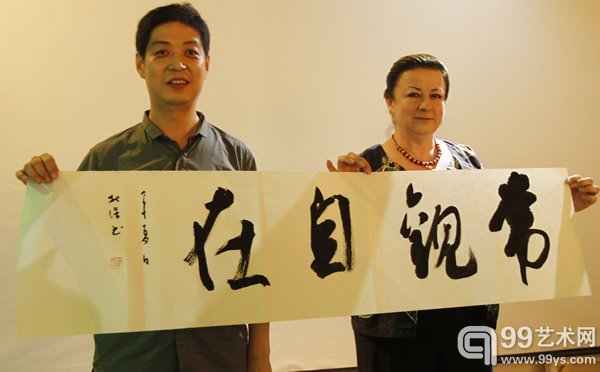 常觀自在
夏日
99艺术网
www.99ys.com